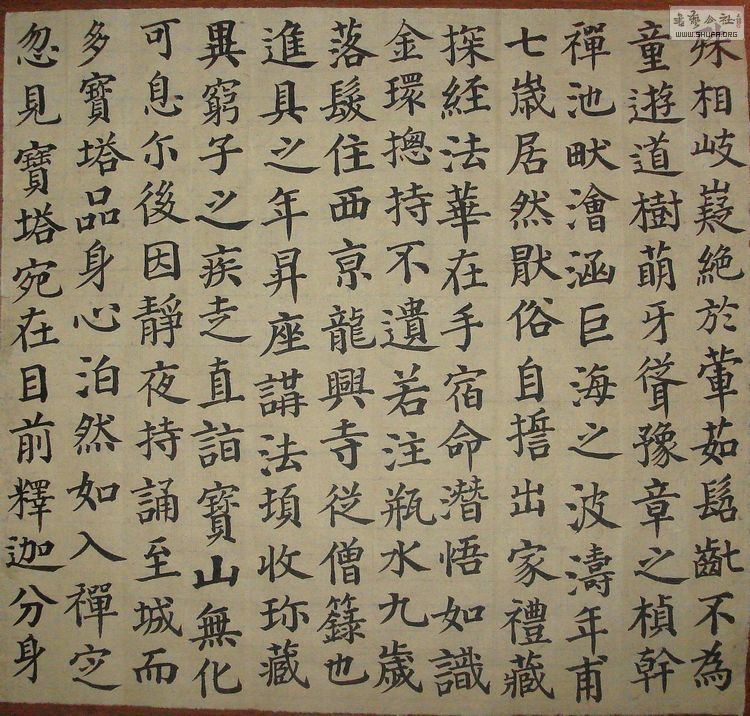 殊相岐嶷絶於葷茹髫齔不為
童遊道樹萌牙聳豫章之楨幹
禪池畎澮涵巨海之波濤年甫
七歳居然猒俗自誓出家禮藏
探經法華在手宿命潛悟如識
金環揔持不遺若注瓶水九歲
落髮住西京龍興寺從僧籙也
進具之年昇座講法頓收珎藏
異窮子之疾走直詣寶山無化
可息尒後因靜夜持誦至城而
多寶塔品身心泊然如入禪定
忽見寶塔宛在目前釋迦分身
書藝公社
WWW.SHUFA.ORG